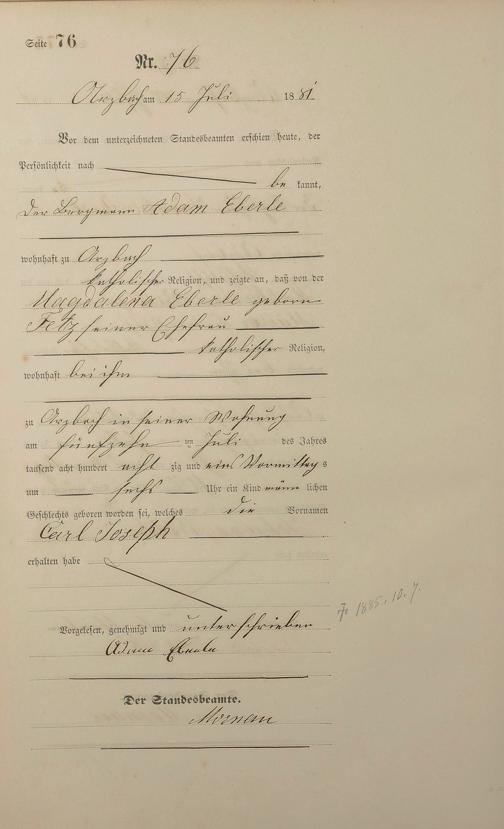 Seite 76
Nr. 76
Arzbach am 15 Juli 1881
Vor dem unterzeichneten Standesbeamten erschien heute, der
Persönlichkeit nach
be kannt,
der Bergmann Adam Eberle
wohnhaft zu Arzbach
katholischer Religion, und zeigte an, daß von der
Magdalena Eberle geborne
Fetz seiner Ehefrau
katholischer Religion,
wohnhaft bei ihm
zu Arzbach in seiner Wohnung
am fünfzehn ten Juli des Jahres
tausend acht hundert acht zig und eins Vormittags
um sechs Uhr ein Kind männ lichen
Geschlechts geboren worden sei, welches die Vornamen
Carl Joseph
erhalten habe
Vorgelesen, genehmigt und unterschrieben
Adam Eberle
Der Standesbeamte.
† 1885. 10. 7.